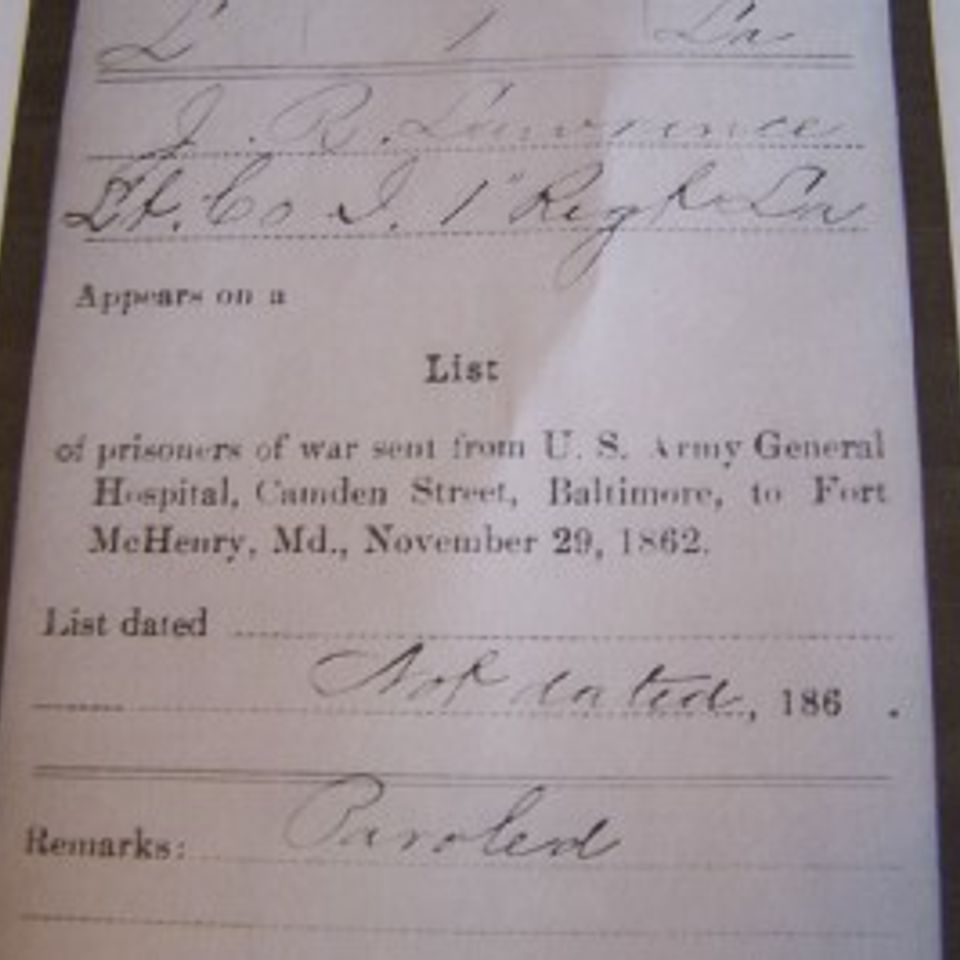 L 1 La
J. R. Lawrence
Lt. Co I. 1" Regt La
Appears on a
List
of prisoners of war sent from U. S. Army General
Hospital, Camden Street, Baltimore, to Fort
McHenry, Md., November 29, 1862.
List dated
Not dated, 186 .
Remarks: Paroled